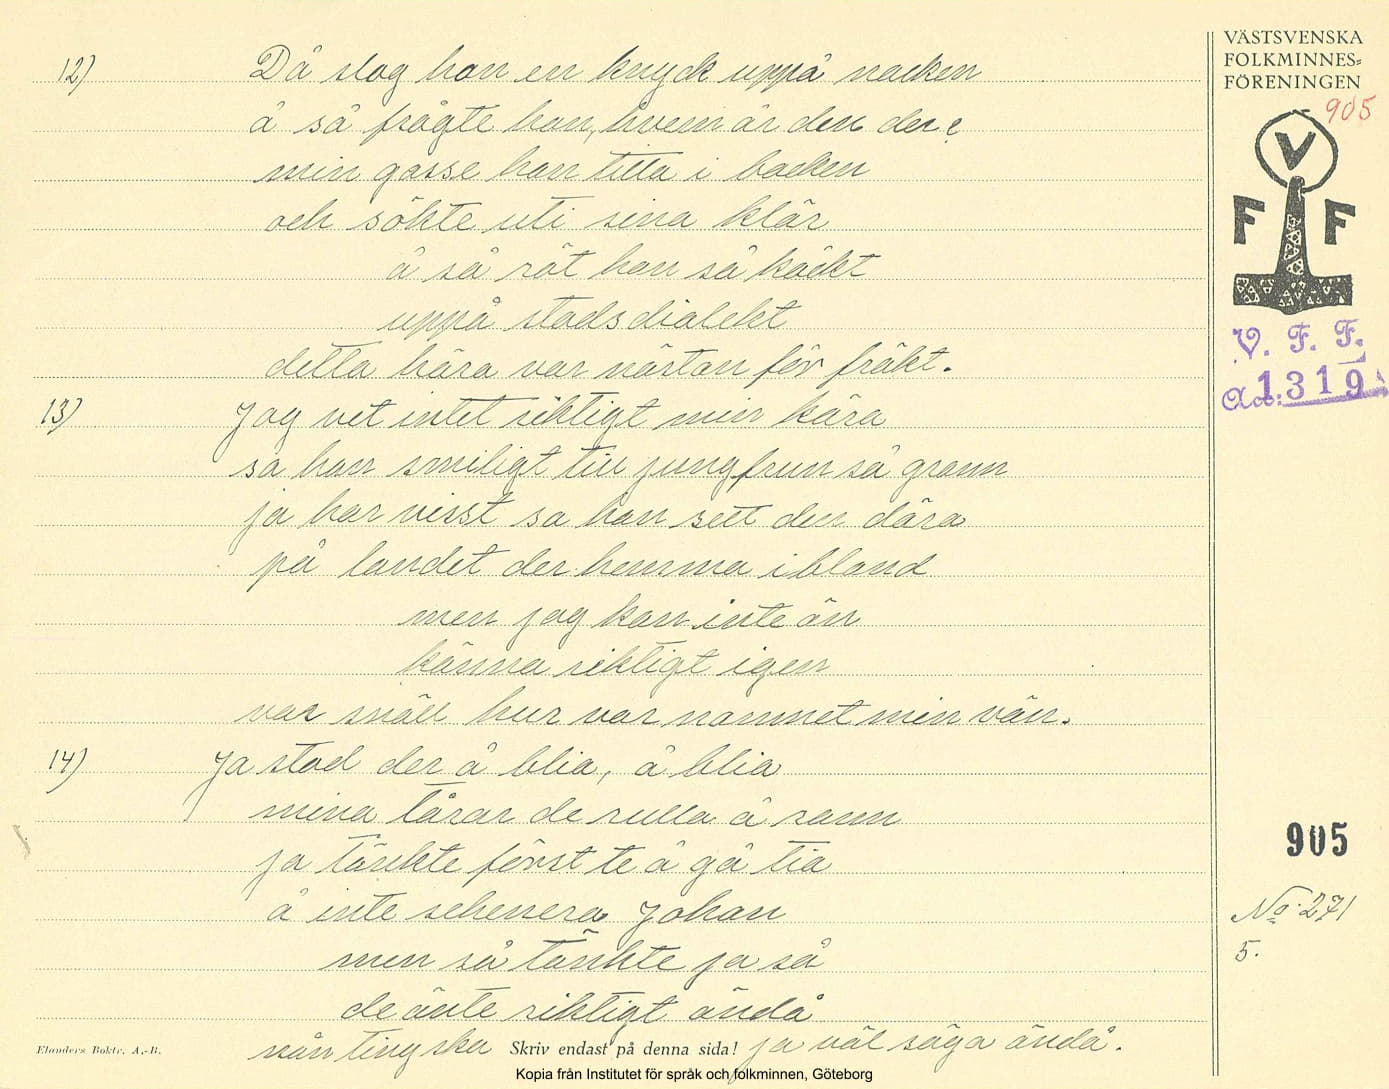 12) Då slog han en knyck uppå nacken
å så frågte han, hvem är den der?
min gosse han titta i backen
och sökte uti sina klär
å så röt han så käckt
uppå stadsdialekt
detta hära var nästan för fräkt.
13) Jag vet intet riktigt min kära
sa han smiligt till jungfrun så grann
ja har visst sa han sett den dära
på landet der hemma ibland
men jag kan inte än
känna riktigt igen
var snäll hur var namnet min vän.
14) Ja stod der å blia, å blia
mina tårar de rulla å rann
ja tänkte först te å gå tia
å inte schenera Johan
men så tänkte ja så
de äute riktigt ändå
nån ting ska ja väl säga ändå.
Elanders Boktr. A.-B.
Skriv endast på denna sida!
Kopia från Institutet för språk och folkminnen, Göteborg
VÄSTSVENSKA
FOLKMINNES=
FÖRENINGEN
905
V
F F
V. F. F.
Acc: 1319
905
No. 271
5.